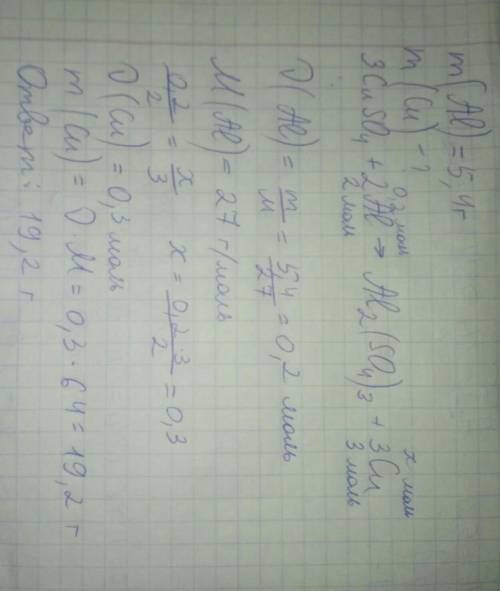 m(Al) = 5,4г
m(Cu) - ?
0,2 моль x моль
3CuSO₄ + 2Al → Al₂(SO₄)₃ + 3Cu
2 моль 3 моль
ν(Al) = m/M = 5,4/27 = 0,2 моль
M(Al) = 27 г/моль
0,2/2 = x/3 x = 0,2·3/2 = 0,3
ν(Cu) = 0,3 моль
m(Cu) = ν·M = 0,3·64 = 19,2 г
Ответ: 19,2 г